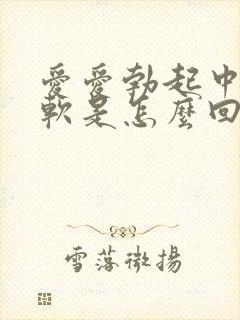 愛愛勃起中
軟是怎麼回
雪落微揚